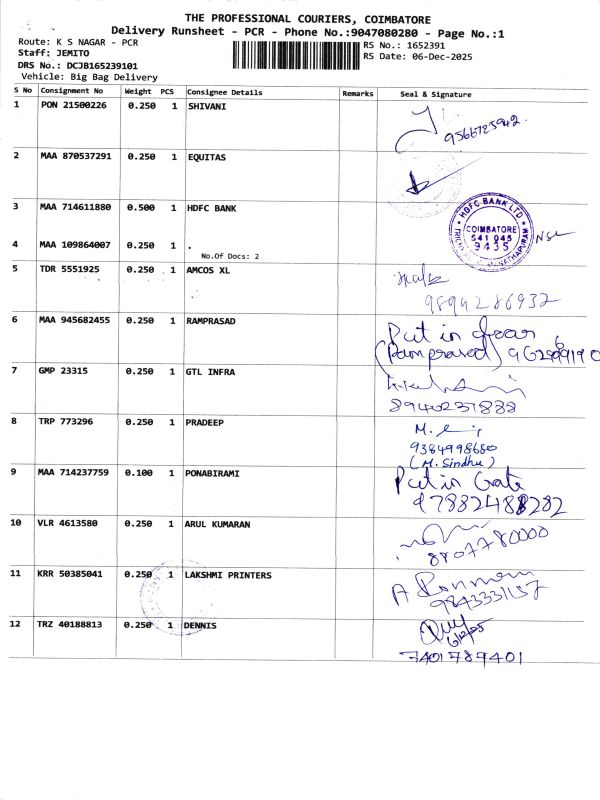 THE PROFESSIONAL COURIERS, COIMBATORE
Delivery Runsheet - PCR - Phone No.:9047080280 - Page No.:1
Route: K S NAGAR - PCR
RS No.: 1652391
Staff: JEMITO
RS Date: 06-Dec-2025
DRS No.: DCJB165239101
Vehicle: Big Bag Delivery
S No Consignment No Weight PCS Consignee Details Remarks Seal & Signature
1 PON 21500226 0.250 1 SHIVANI
9566725942
2 MAA 870537291 0.250 1 EQUITAS
3 MAA 714611880 0.500 1 HDFC BANK
HDFC BANK LTD
COIMBATORE
641 045
3435
4 MAA 109864007 0.250 1 .
No.Of Docs: 2
5 TDR 5551925 0.250 1 AMCOS XL
9894286932
6 MAA 945682455 0.250 1 RAMPRASAD
Put in door
(Ramprasad)
7 GMP 23315 0.250 1 GTL INFRA
8940231888
8 TRP 773296 0.250 1 PRADEEP
9384998680
(M. Sindhu)
9 MAA 714237759 0.100 1 PONABIRAMI
Put in Gate
10 VLR 4613580 0.250 1 ARUL KUMARAN
8807780000
11 KRR 50385041 0.250 1 LAKSHMI PRINTERS
12 TRZ 40188813 0.250 1 DENNIS
6/12/25
7401787401